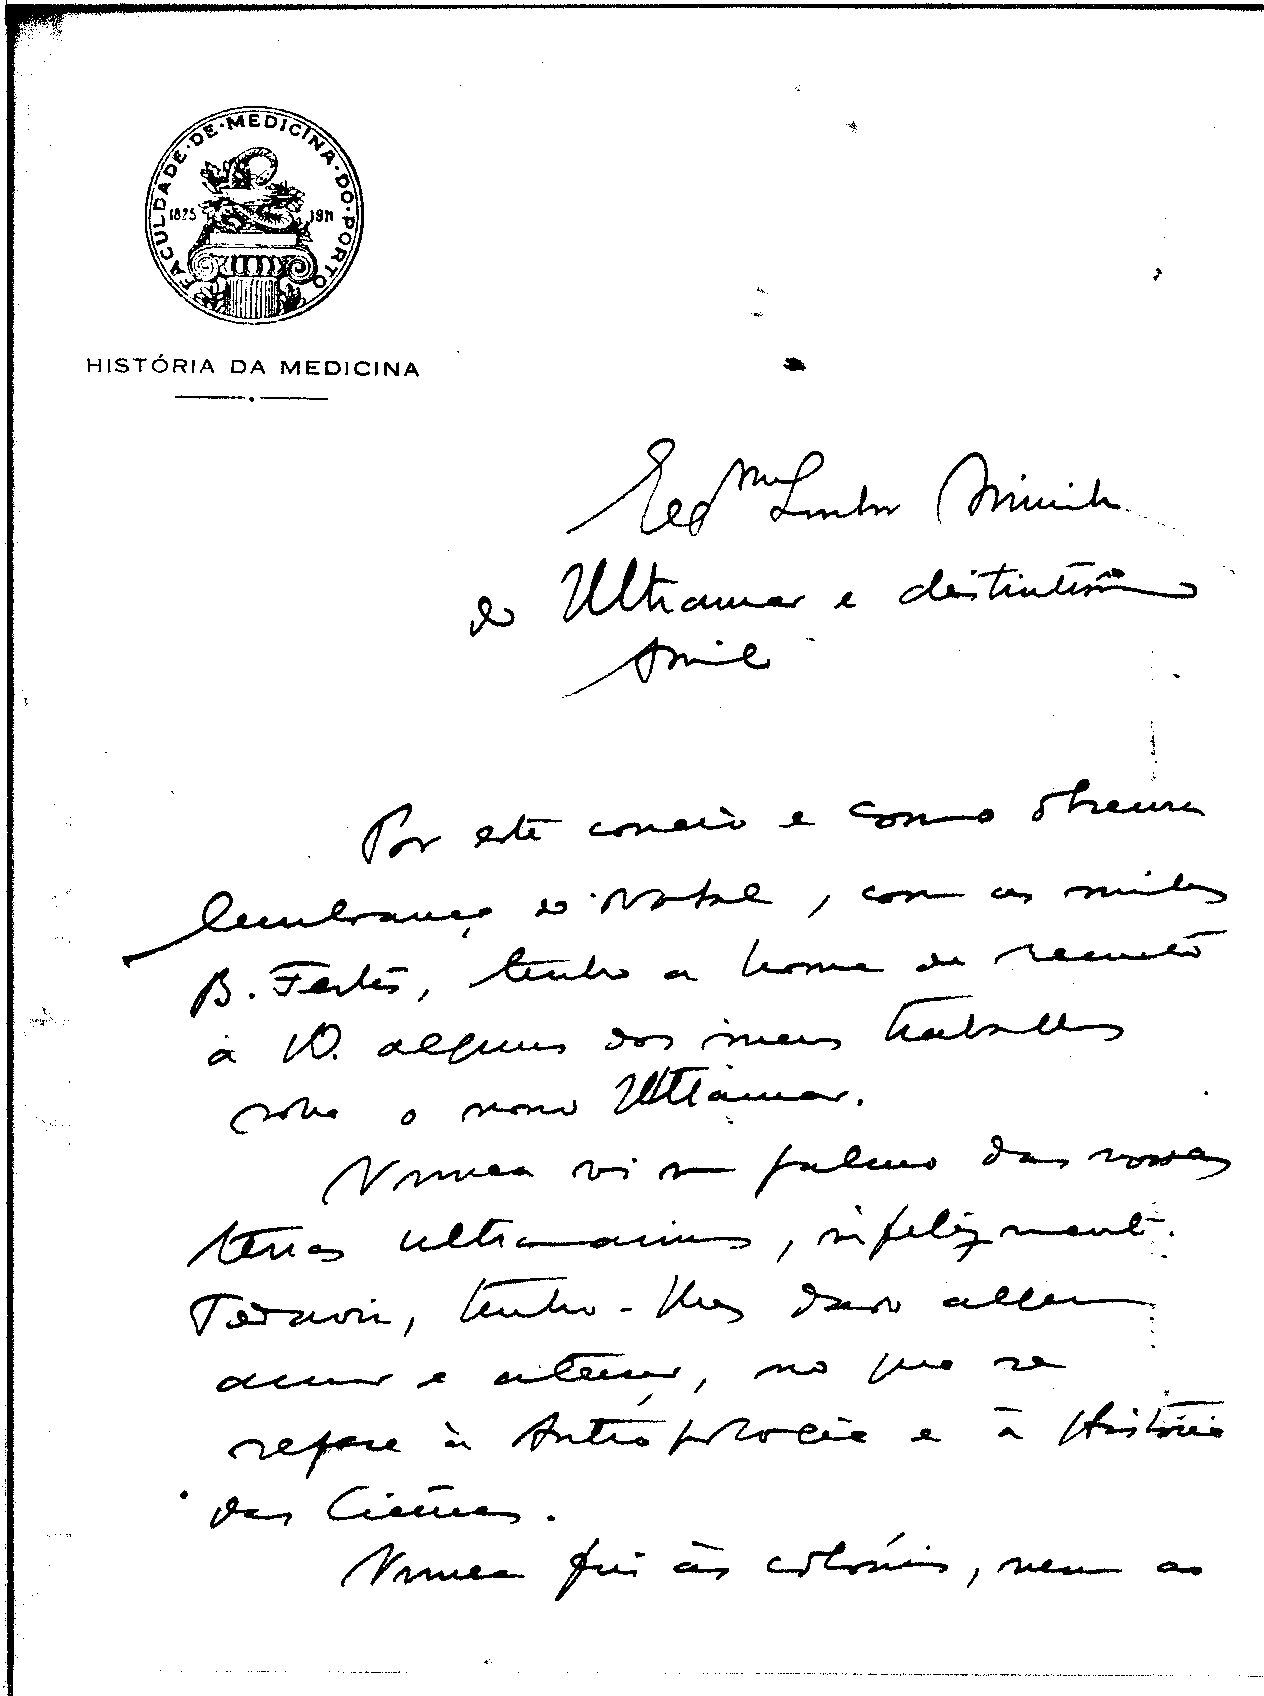 FACULDADE·DE·MEDICINA·DO·PORTO
1825 1911
HISTÓRIA DA MEDICINA
Exmo Senhor Ministro
do Ultramar e distintíssimo
Amigo
Por este correio e como obscura
lembrança do Natal, com as minhas
B. Festas, tenho a honra de remeter
a V. alguns dos meus trabalhos
sobre o nosso Ultramar.
Nunca vi um palmo das nossas
terras ultramarinas, infelizmente.
Todavia, tenho-lhes dado algum
amor e interesse, no que se
refere à Antropologia e à História
das Ciências.
Nunca fui às colónias, nem ao